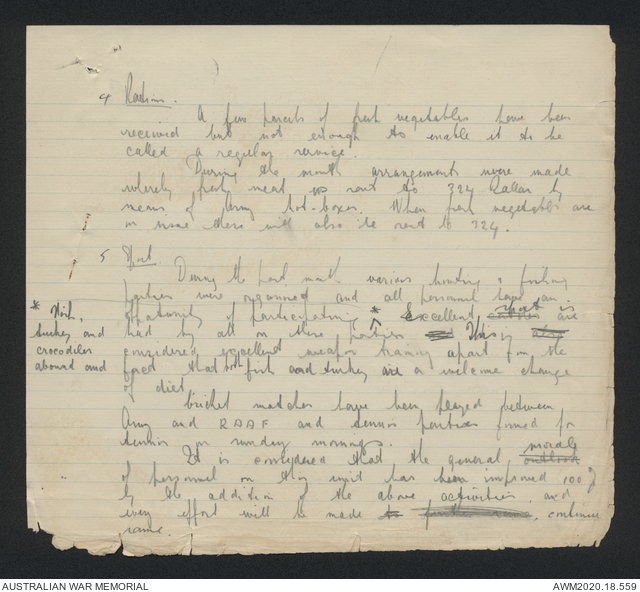 4 Rations.
A few parcels of fresh vegetables have been
received but not enough to enable it to be
called a regular service.
During the month arrangements were made
whereby fresh meat is sent to 324 Radar by
means of Army hot-boxes. When fresh vegetables are
on issue there will also be sent to 324.
5 Sport.
During the past month various hunting & fishing
parties were organised and all personnel have an
opportunity of participating * Excellent sport is
had by all on these parties This is
considered excellent weapon training apart from the
fact that both fish and turkey are a welcome change
of diet.
* Fish,
turkey and
crocodiles
abound and
Cricket matches have been played between
Army and RAAF and tennis parties formed for
tennis on Sunday mornings.
It is considered that the general morale
of personnel on this unit has been improved 100%
by the addition of the above activities and
every effort will be made to continue
same.
AUSTRALIAN WAR MEMORIAL
AWM2020.18.559